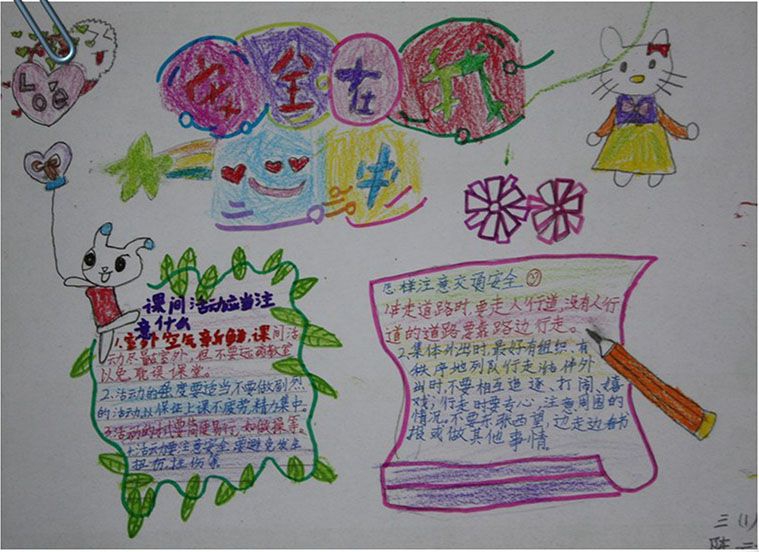 安全在我
心中
课间活动应当注
意什么
1.室外空气新鲜,课间活
动尽量在室外,但不要远离教室
以免耽误课堂。
2.活动的强度要适当不要做剧烈
的活动以保证上课不疲劳,精力集中。
3.活动的方式要简便易行,如做操等。
4.活动要注意安全,要避免发生
扭伤,挫伤等
怎样注意交通安全
1.在走道路时,要走人行道,没有人行
道的道路要靠路边行走。
2.集体外出时,最好有组织、有
秩序地列队行走,结伴外
出时,不要相互追逐、打闹、嬉
戏;行走时要专心,注意周围的
情况,不要东张西望、边走边看书
报或做其他事情
三(1)